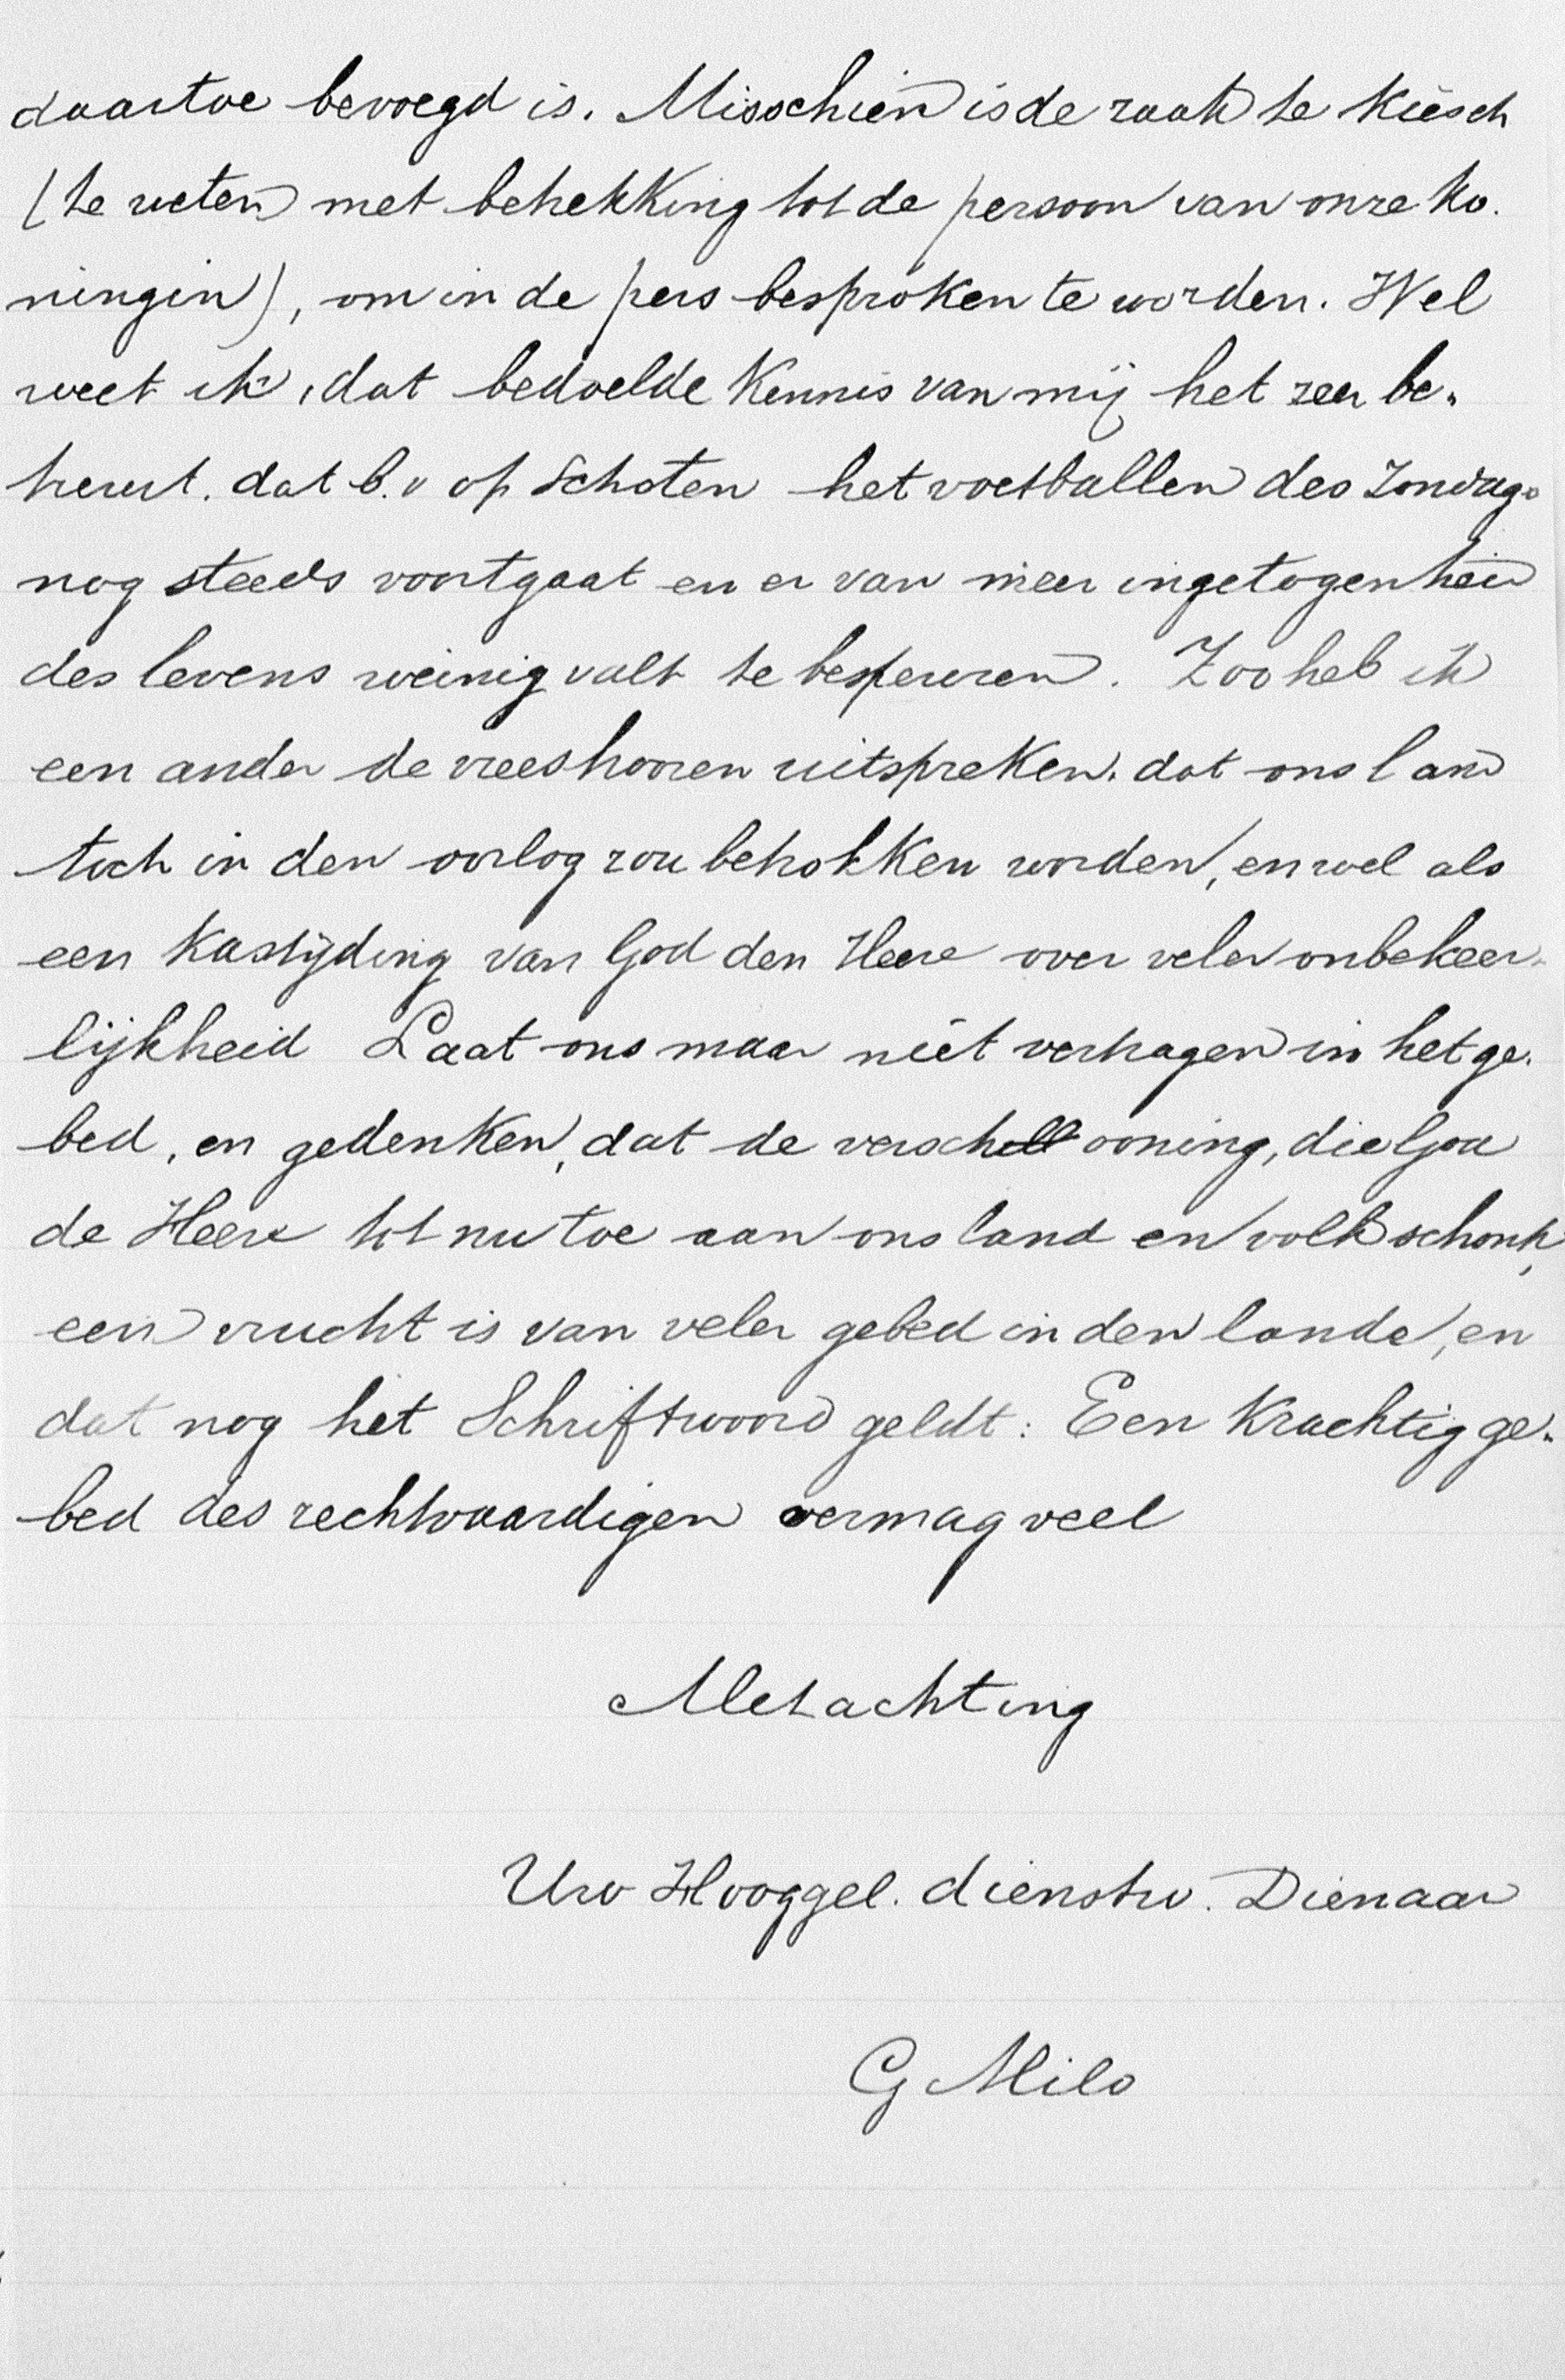 daartoe bevoegd is. Misschien is de zaak te kiesch
(te weten met betrekking tot de persoon van onze ko-
ningin), om in de pers besproken te worden. Wel
weet ik, dat bedoelde kennis van mij het zeer be-
treurt, dat b.v op Schoten het voetballen des Zondags
nog steeds voortgaat en er van meer ingetogenheid
des levens weinig valt te bespeuren. Zoo heb ik
een ander de vrees hooren uitspreken, dat ons land
toch in den oorlog zou betrokken worden, en wel als
een kastijding van God den Heere over veler onbekeer-
lijkheid Laat ons maar niet vertragen in het ge-
bed, en gedenken, dat de verschooning, die God
de Heere tot nu toe aan ons land en volk schonk,
een vrucht is van veler gebed in den lande, en
dat nog het Schriftwoord geldt: Een krachtig ge-
bed des rechtvaardigen vermag veel
Met achting
Uw Hooggel. dienstw. Dienaar
G Milo